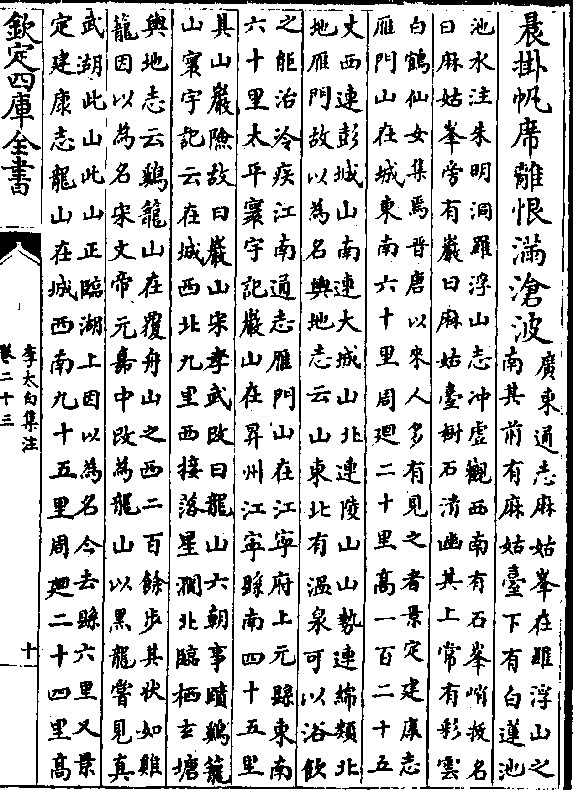 晨掛帆席離恨滿滄波廣東通志麻姑峯在羅浮山之
南其前有麻姑臺下有白蓮池
池水注朱明洞羅浮山志冲虛觀西南有石峯峭拔名
曰麻姑峯旁有巖曰麻姑臺樹石清幽其上常有彩雲
白鶴仙女集焉晉唐以來人多有見之者景定建康志
雁門山在城東南六十里周廻二十里高一百二十五
丈西連彭城山南連大城山北連陵山山勢連綿類北
地雁門故以為名輿地志云山東北有溫泉可以浴飲
之能治冷疾江南通志雁門山在江寧府上元縣東南
六十里太平寰宇記巖山在昇州江寧縣南四十五里
其山巖險故曰巖山宋孝武改曰龍山六朝事蹟鷄籠
山寰宇記云在城西北九里西接落星澗北臨栖玄塘
輿地志云鷄籠山在覆舟山之西二百餘步其狀如雞
籠因以為名宋文帝元嘉中改為龍山以黑龍嘗見真
武湖此山此山正臨湖上因以為名今去縣六里又景
定建康志龍山在城西南九十五里周廻二十四里高
欽定四庫全書
李太白集注
卷二十三
十